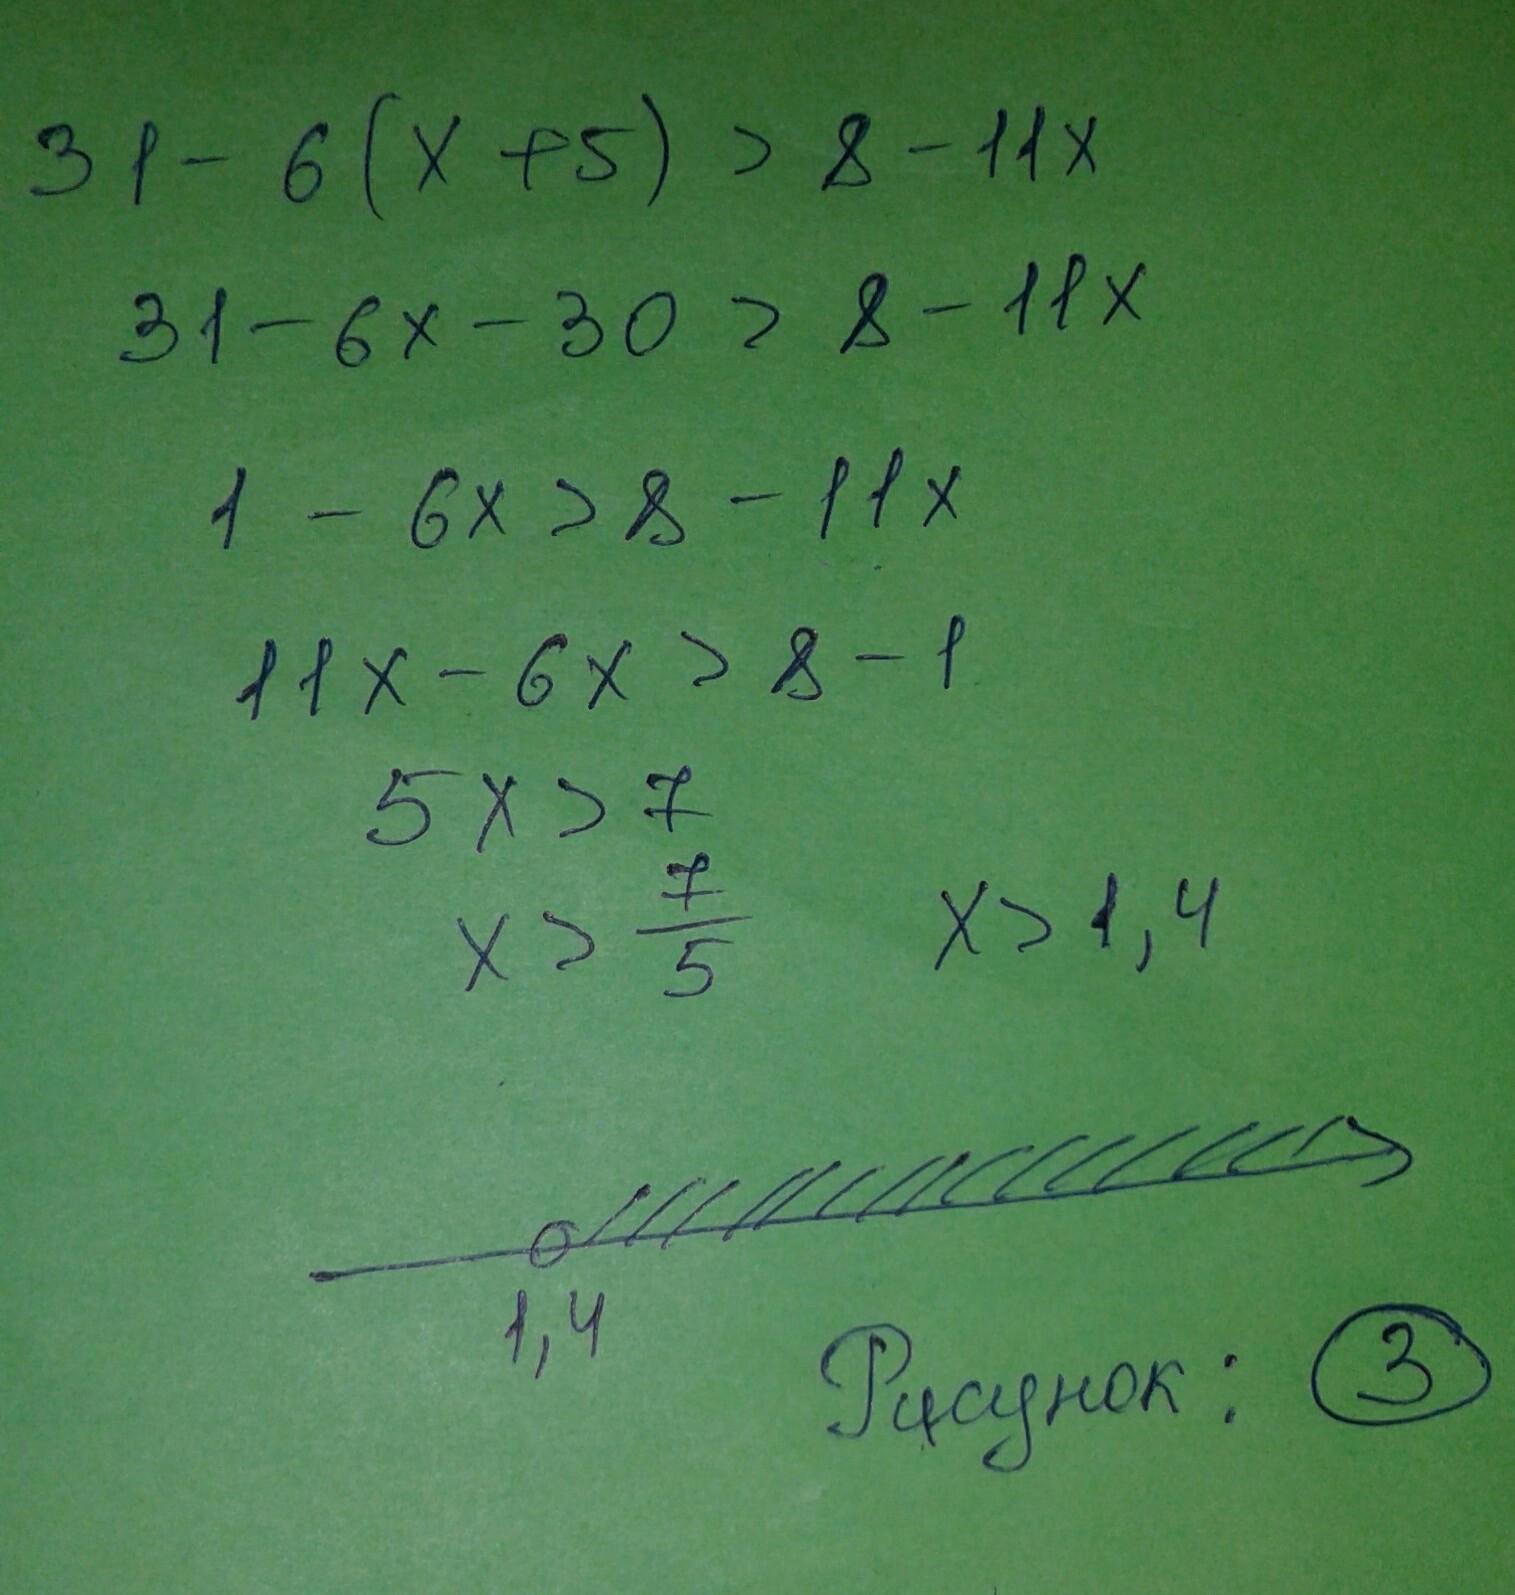 31 - 6(x + 5) > 8 - 11x
31 - 6x - 30 > 8 - 11x
1 - 6x > 8 - 11x
11x - 6x > 8 - 1
5x > 7
x > 7/5 x > 1,4
1,4
Рисунок: 3